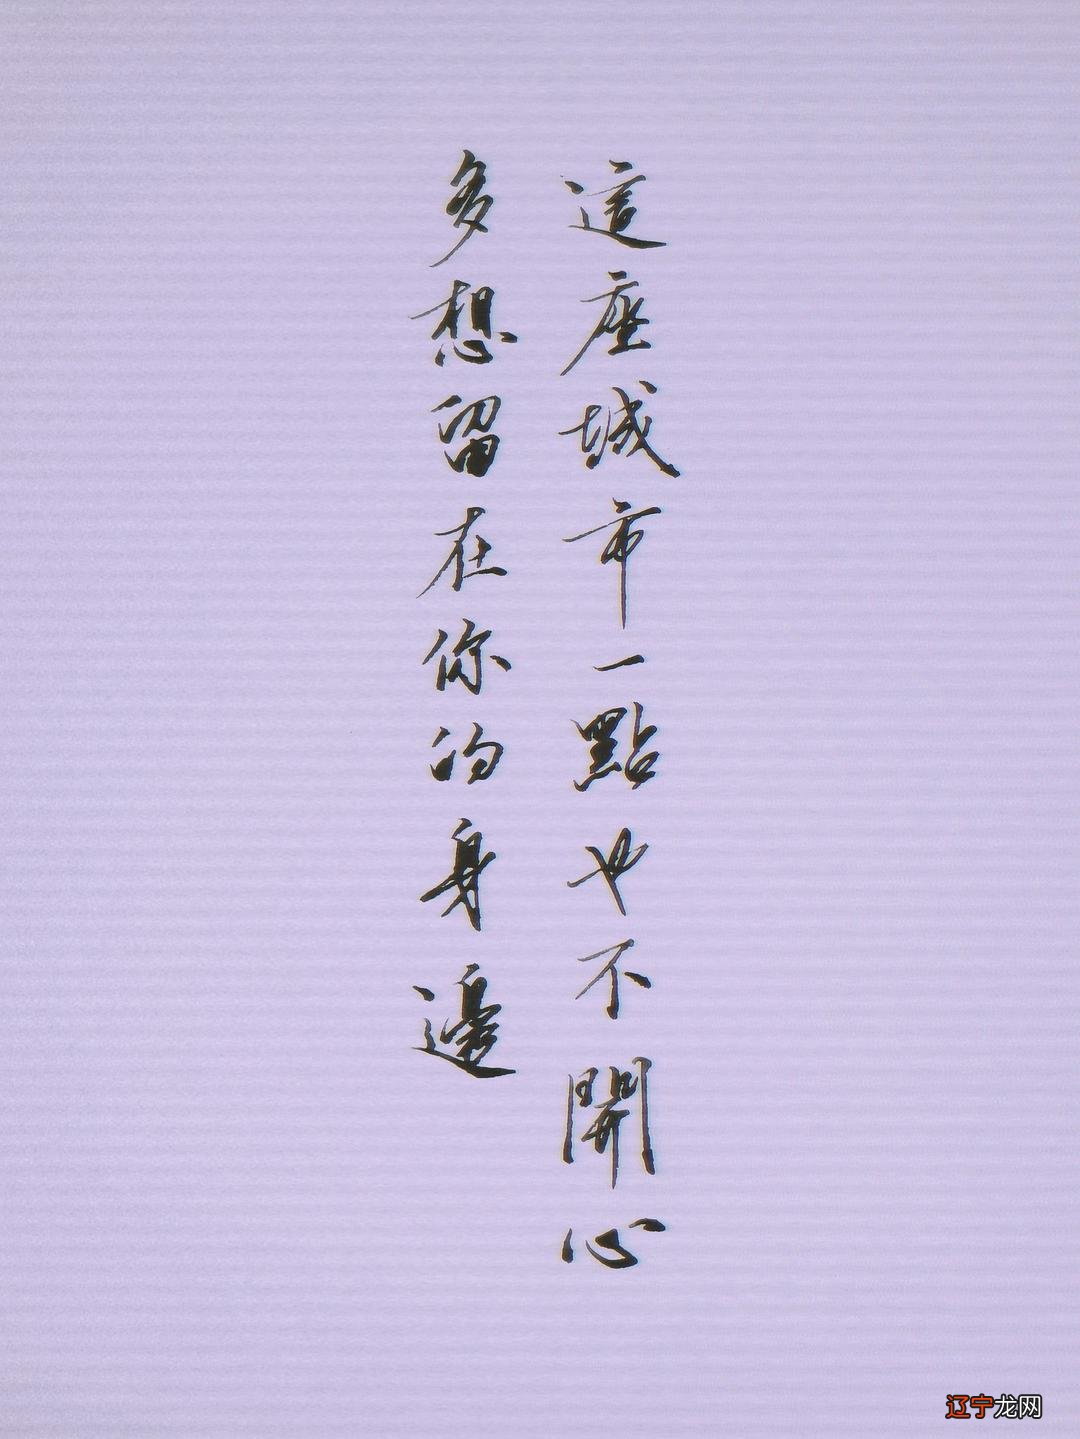 這座城市一點也不開心
多想留在你的身邊
辽宁龙网